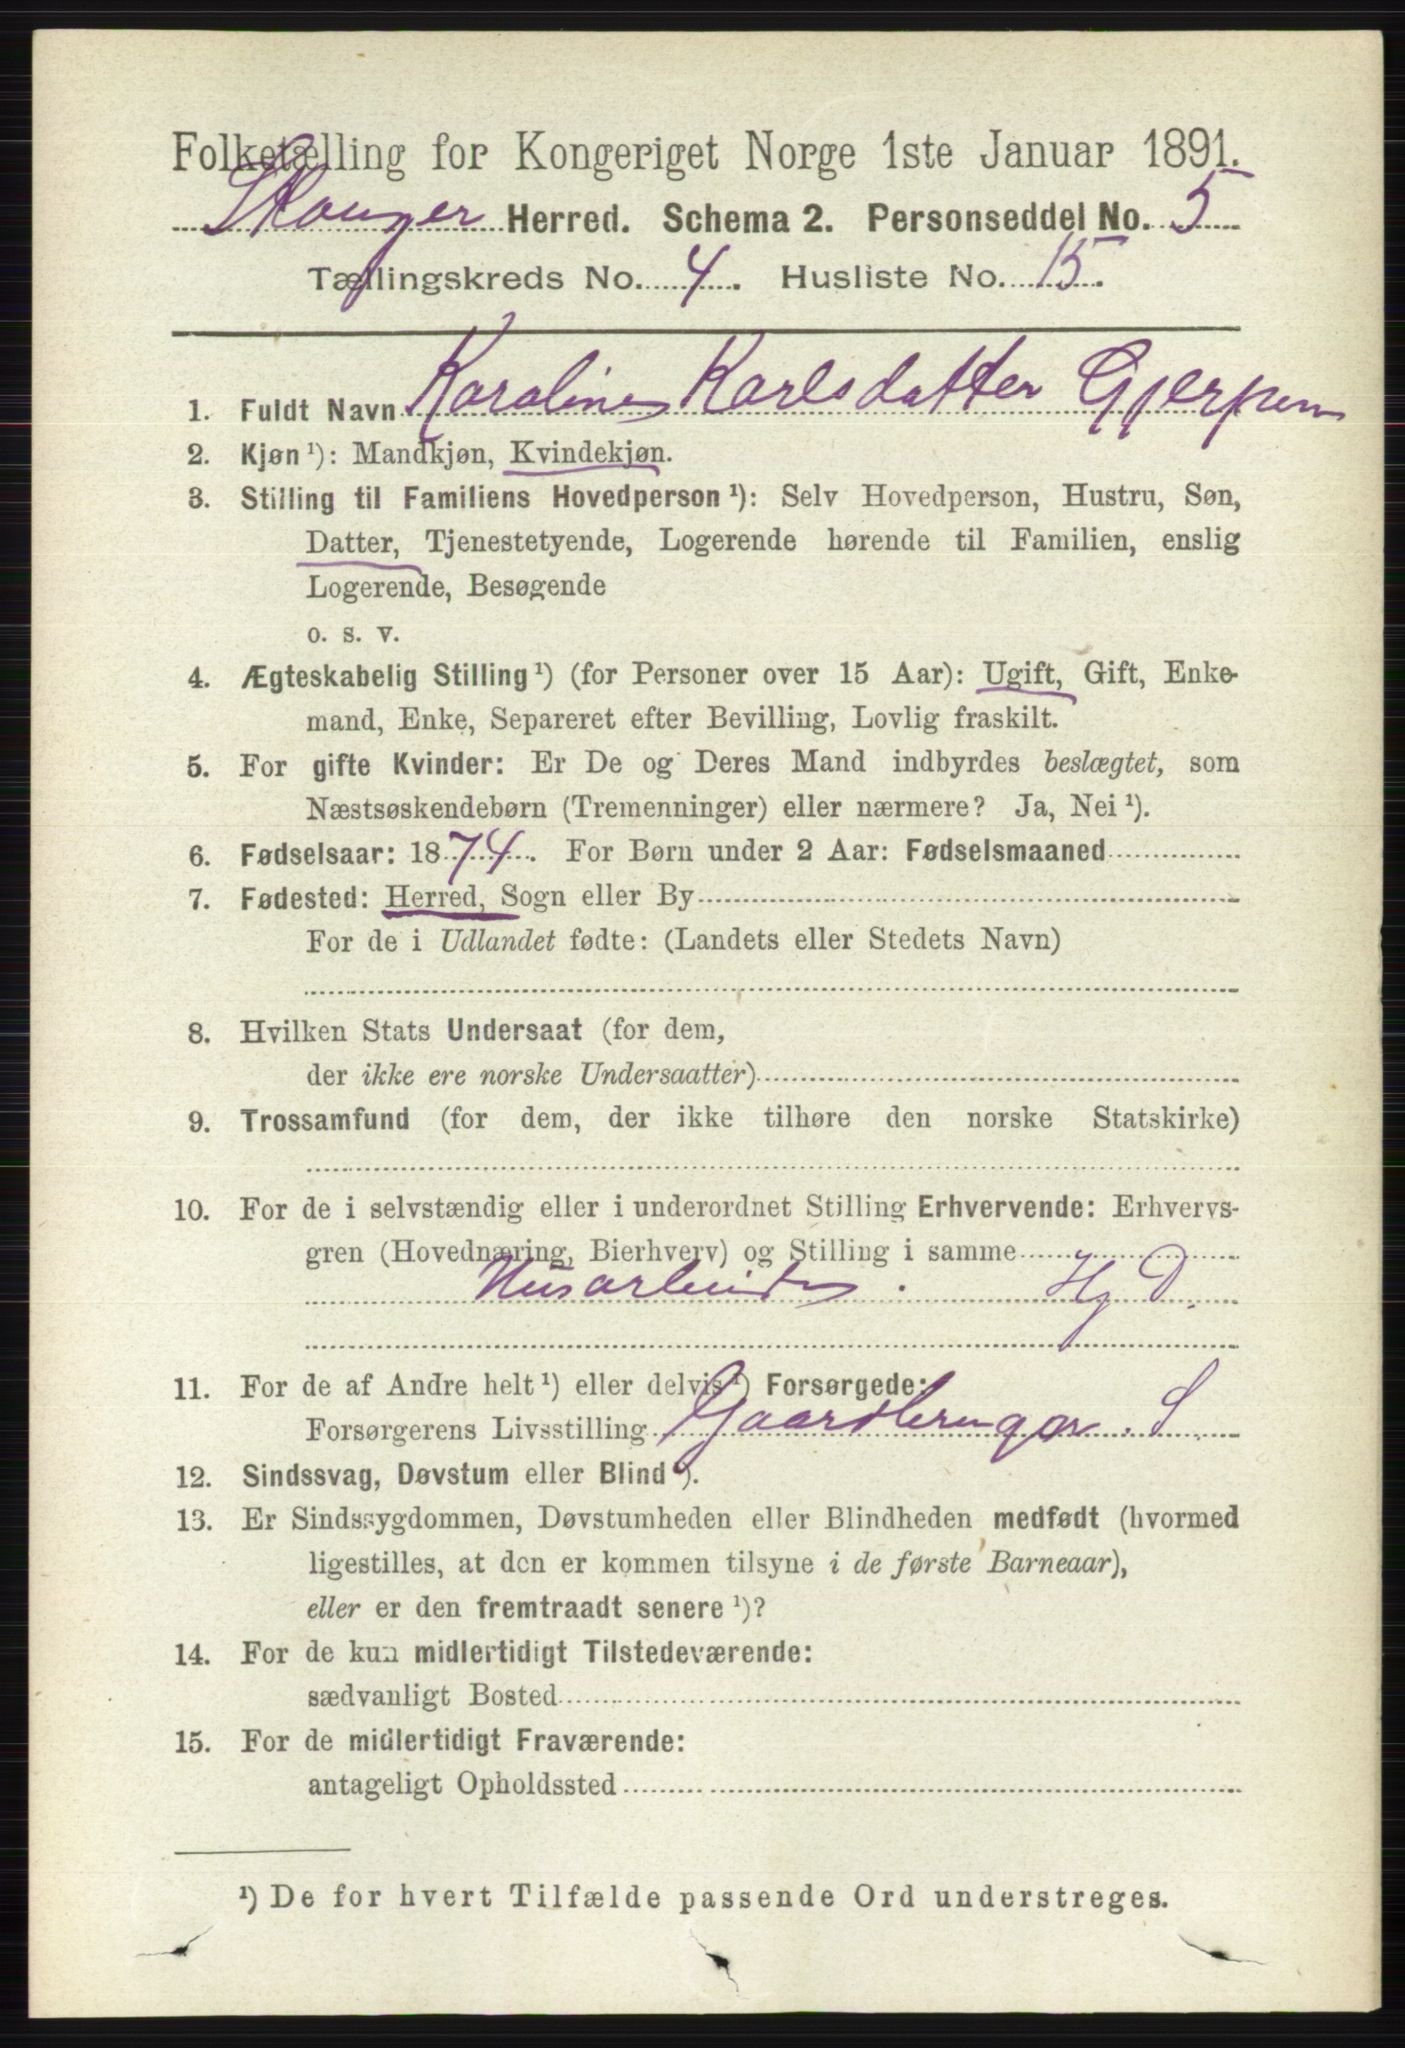 Folketælling for Kongeriget Norge 1ste Januar 1891.
Skouger Herred. Schema 2. Personseddel No. 5
Tællingskreds No. 4. Husliste No. 15.
1. Fuldt Navn Karoline Karlsdatter Gjerpen
2. Kjøn ¹): Mandkjøn, Kvindekjøn.
3. Stilling til Familiens Hovedperson ¹): Selv Hovedperson, Hustru, Søn,
Datter, Tjenestetyende, Logerende hørende til Familien, enslig
Logerende, Besøgende
o. s. v.
4. Ægteskabelig Stilling ¹) (for Personer over 15 Aar): Ugift, Gift, Enke-
mand, Enke, Separeret efter Bevilling, Lovlig fraskilt.
5. For gifte Kvinder: Er De og Deres Mand indbyrdes beslægtet, som
Næstsøskendebørn (Tremenninger) eller nærmere? Ja, Nei ¹).
6. Fødselsaar: 1874. For Børn under 2 Aar: Fødselsmaaned
7. Fødested: Herred, Sogn eller By
For de i Udlandet fødte: (Landets eller Stedets Navn)
8. Hvilken Stats Undersaat (for dem,
der ikke ere norske Undersaatter)
9. Trossamfund (for dem, der ikke tilhøre den norske Statskirke)
10. For de i selvstændig eller i underordnet Stilling Erhvervende: Erhvervs-
gren (Hovednæring, Bierhverv) og Stilling i samme
Husarbeide. Hj D.
11. For de af Andre helt ¹) eller delvis ¹) Forsørgede:
Forsørgerens Livsstilling Gaardbruger. S.
12. Sindssvag, Døvstum eller Blind ¹).
13. Er Sindssygdommen, Døvstumheden eller Blindheden medfødt (hvormed
ligestilles, at den er kommen tilsyne i de første Barneaar),
eller er den fremtraadt senere ¹)?
14. For de kun midlertidigt Tilstedeværende:
sædvanligt Bosted
15. For de midlertidigt Fraværende:
antageligt Opholdssted
¹) De for hvert Tilfælde passende Ord understreges.